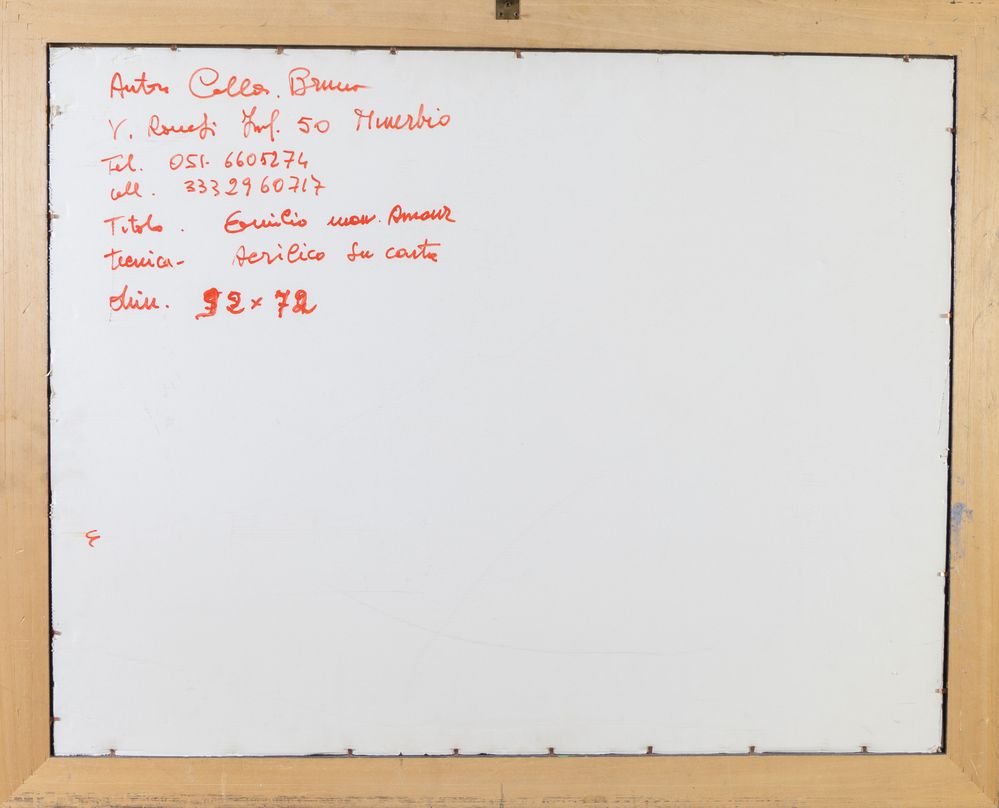 Autore Collor. Bruno
V. Ronchi Inf. 50 Minerbio
Tel. 051. 6605274
cell. 333 2960717
Titolo. Emilio mon. Amour
tecnica- Acrilico su carta
dim. 92 x 72